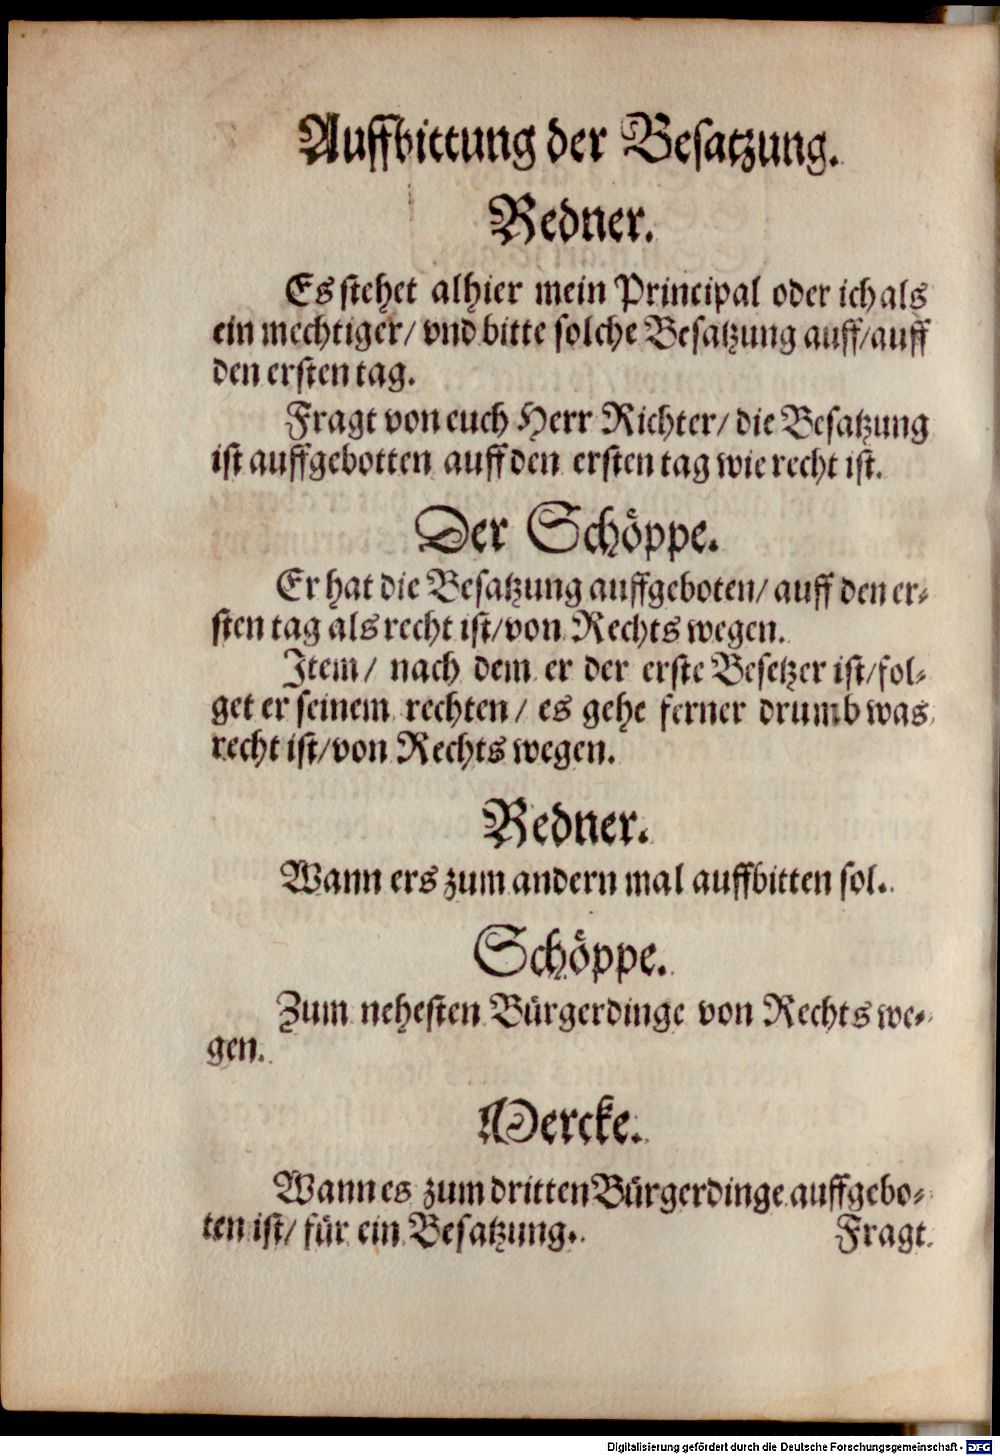 Auffbittung der Besatzung.
Redner.
Es stehet alhier mein Principal oder ich als
ein mechtiger/ vnd bitte solche Besatzung auff/auff
den ersten tag.
Fragt von euch Herr Richter/ die Besatzung
ist auffgebotten auff den ersten tag wie recht ist.
Der Schöppe.
Er hat die Besatzung auffgeboten/ auff den er-
sten tag als recht ist/von Rechts wegen.
Item/ nach dem er der erste Besetzer ist/fol-
get er seinem rechten/ es gehe ferner drumb was
recht ist/von Rechts wegen.
Redner.
Wann ers zum andern mal auffbitten sol.
Schöppe.
Zum nehesten Bürgerdinge von Rechts we-
gen.
Mercke.
Wann es zum dritten Bürgerdinge auffgebo-
ten ist/ für ein Besatzung.
Fragt
Digitalisierung gefördert durch die Deutsche Forschungsgemeinschaft - DFG